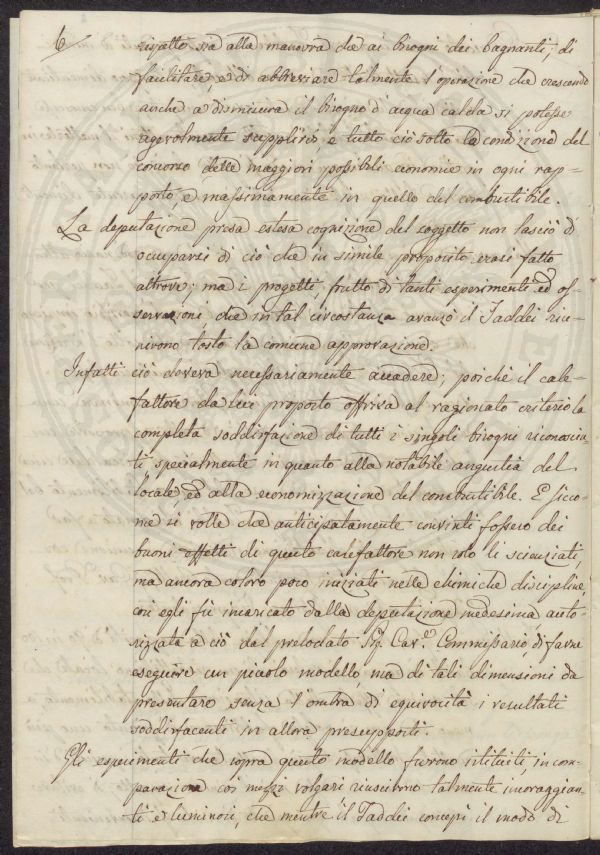 6
rispetto sia alla manovra che ai bisogni dei bagnanti; di
facilitare, e di abbreviare talmente l'operazione che crescendo
anche a dismisura il bisogno d'acqua calda si potesse
agevolmente supplirvi, e tutto ciò sotto la condizione del
concorso delle maggiori possibili economie in ogni rap-
porto, e massimamente in quello del combustibile.
La deputazione presa estesa cognizione del soggetto non lasciò d'
occuparsi di ciò che in simile proposito erasi fatto
altrove; ma i progetti, frutto di tanti esperimenti ed os-
servazioni che in tal circostanza avanzò il Taddei riu-
nirono tosto la comune approvazione.
Infatti ciò doveva necessariamente accadere; poichè il cale-
fattore da lui proposto offriva al ragionato criterio la
completa soddisfazione di tutti i singoli bisogni riconosciu-
ti specialmente in quanto alla notabile angustia del
locale, ed alla economizzazione del combustibile. E sicco-
me si volle che anticipatamente convinti fossero dei
buoni effetti di questo calefattore non solo li scienziati,
ma ancora coloro poco iniziati nelle chimiche discipline,
così egli fù incaricato dalla deputazione medesima, auto-
rizzata a ciò dal prelodato Sig. Cav.e Commissario, di farne
eseguire un piccolo modello, ma di tali dimensioni da
presentare senza l'ombra di equivocità i resultati
soddisfacenti in allora presupposti.
Gli esperimenti che sopra questo modello furono istituiti, in com-
parazione coi mezzi volgari riuscirono talmente incoraggian-
ti e luminosi, che mentre il Taddei concepì il modo di